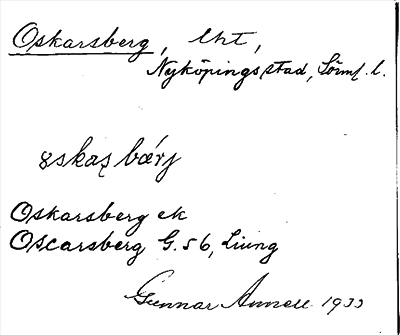 Oskarsberg, lht,
Nyköpings stad, Sörml. l.
oskaʂ bærj
Oskarsberg ek
Oscarsberg G. 56, Ljung
Gunnar Annell 1933